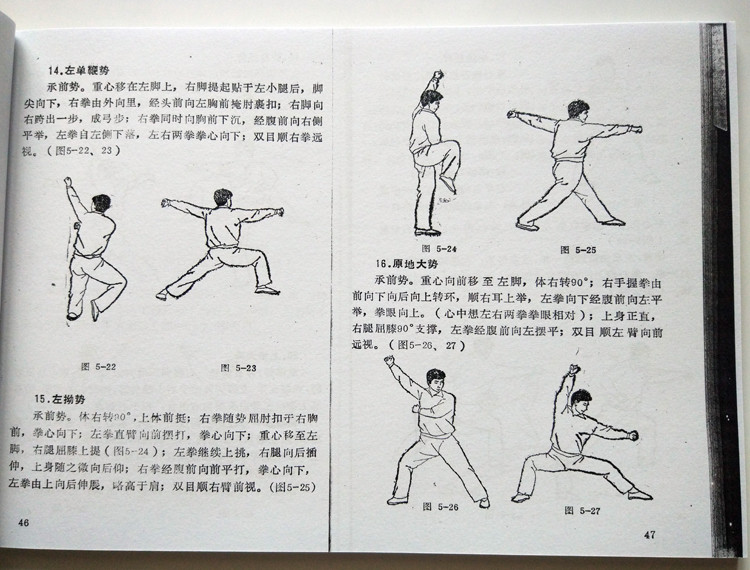 14.左单鞭势
承前势。重心移在左脚上，右脚提起贴于左小腿后，脚
尖向下，右拳由外向里，经头前向左胸前掩肘裹扣；右脚向
右跨出一步，成弓步；右拳同时向胸前下沉，经腹前向右侧
平举，左拳自左侧下落，左右两拳拳心向下；双目顺右拳远
视。（图5-22、23）
图 5-22
图 5-23
15.左拗势
承前势。体右转90°，上体前挺；右拳随势屈肘扣于右胸
前，拳心向下；左拳直臂向前摆打，拳心向下；重心移至左
脚，右腿屈膝上提（图5-24）；左拳继续上挑，右腿向后插
伸，上身随之微向后仰；右拳经腹前向前平打，拳心向下，
左拳由上向后伸展，略高于肩；双目顺右臂前视。（图5-25）
46
图 5-24
图 5-25
16.原地大势
承前势。重心向前移至左脚，体右转90°；右手握拳由
前向下向后向上转环，顺右耳上举，左拳向下经腹前向左平
举，拳眼向上。（心中想左右两拳拳眼相对）；上身正直，
右腿屈膝90°支撑，左拳经腹前向左摆平；双目顺左臂向前
远视。（图5-26、27）
图 5-26
图 5-27
47